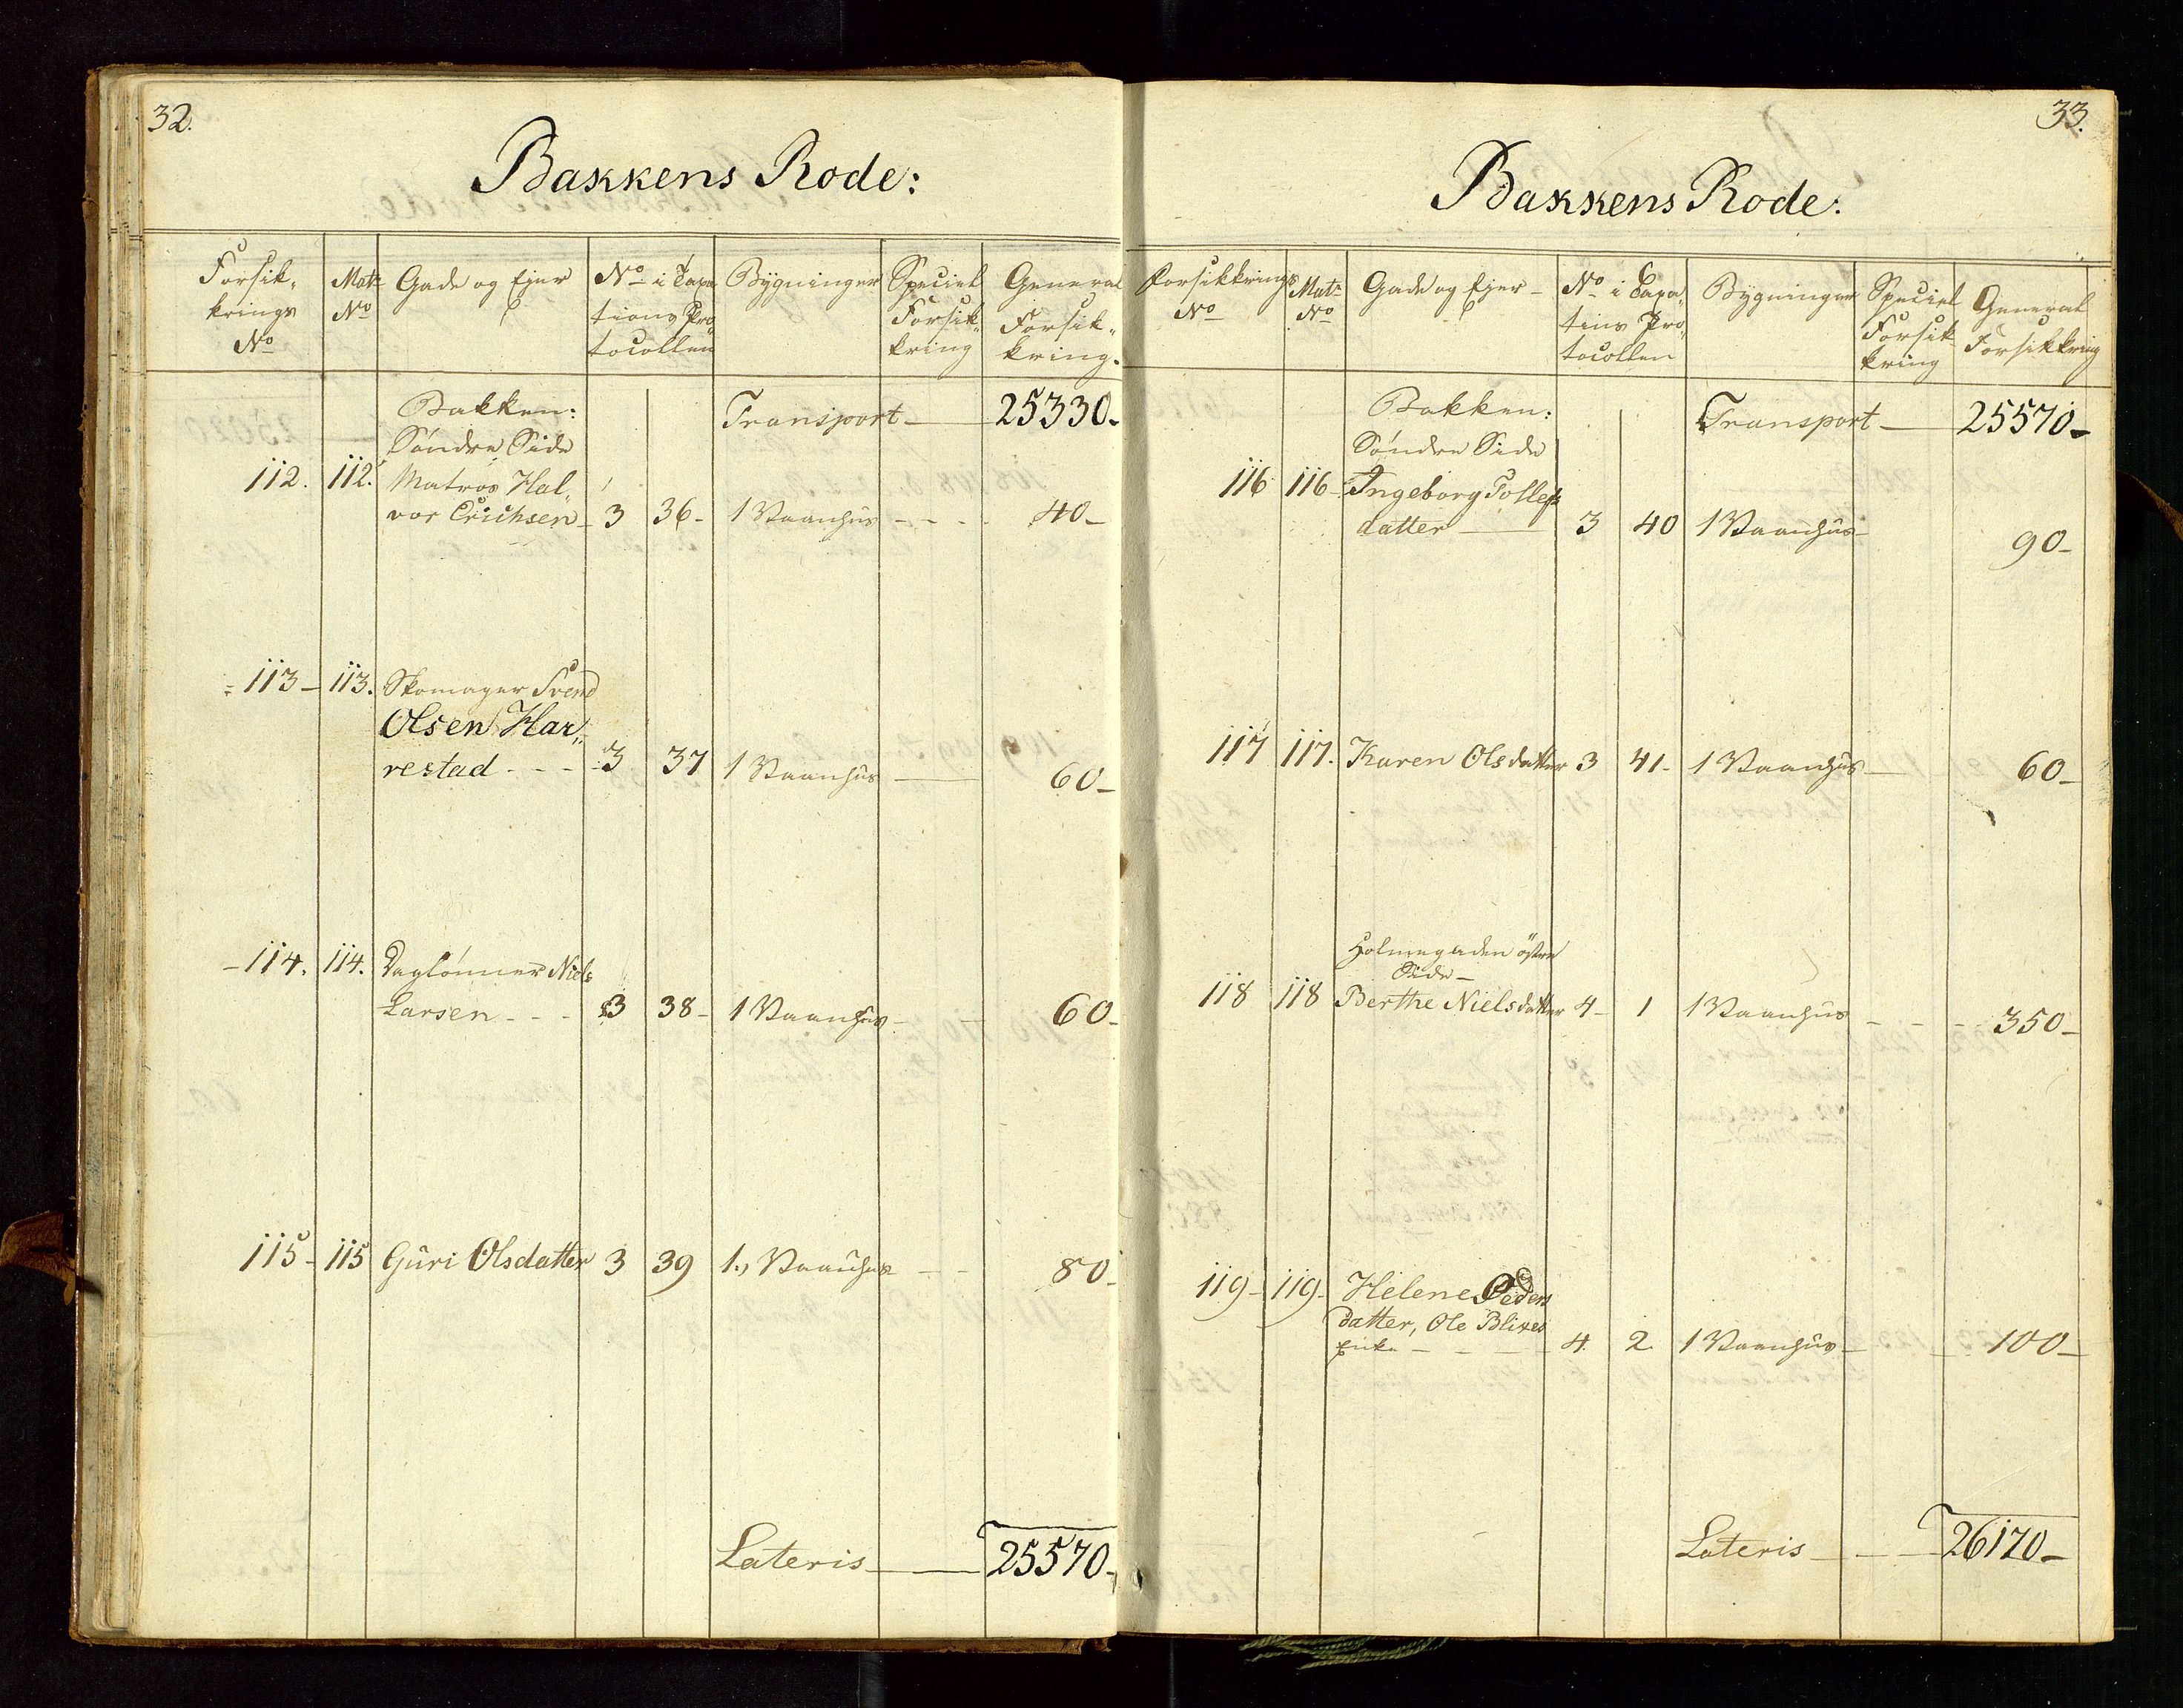 32.
Bakkens Rode:
Forsik-
krings
No
Matr
No
Gade og Ejer
No i Taxa
tions Pro
tocollen
Bygninger
Speciel
Forsik-
kring
General
Forsik-
kring.
Bakken:
Søndre Side
Transport — 25330-
112. 112. Matros Hal-
vor Erichsen 3 36- 1 Vaanhus - - - 40-
113- 113. Skomager Svend
Olsen Har„
restad - - - 3 37 1 Vaanhus — 60-
114. 114. Daglønner Niels
Larsen - - - 3 38- 1 Vaanhus - - 60-
115- 115 Guri Olsdatter 3 39 1., Vaanhus - - 80-
Lateris — 25570-
33.
Bakkens Rode:
Forsikkrings
No
Matr
No
Gade og Ejer-
No i Taxa-
tins Pro-
tocollen
Bygninger
Speciel
Forsik
kring
General
Forsikkring
Bakken:
Søndre Side
Transport — 25570-
116 116- Ingeborg Tollefs
datter — 3 40 1 Vaanhus- 90-
117 117. Karen Olsdatter 3 41- 1 Vaanhus — 60-
Holmegaden østre
Side-
118 118 Berthe Nielsdatter 4- 1 1 Vaanhus - - - 350-
119- 119- Helene Peders
datter, Ole Blixes
Enke - - - 4. 2. 1 Vaanhus - - 100-
Lateris - - - 26170-